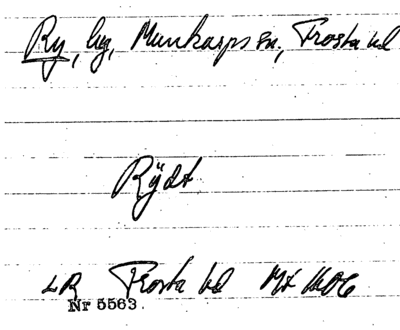 Ry, by, Munkarps sn, Frosta hd
Rÿdt
LR Frosta hd
Nr 5563.